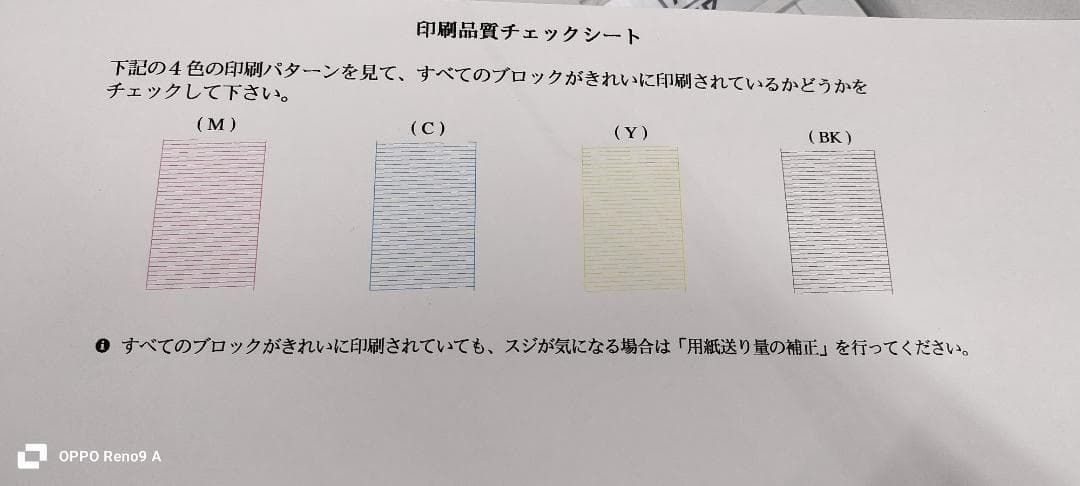 印刷品質チェックシート
下記の４色の印刷パターンを見て、すべてのブロックがきれいに印刷されているかどうかを
チェックして下さい。
(M) (C) (Y) (BK)
すべてのブロックがきれいに印刷されていても、スジが気になる場合は「用紙送り量の補正」を行ってください。
OPPO Reno9 A